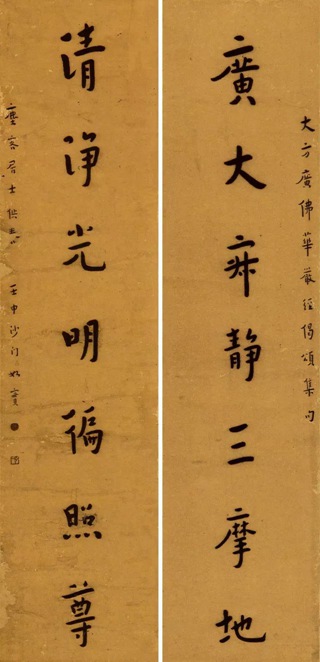 大方廣佛華嚴經偈頌集句
廣大寂静三摩地
清浄光明徧照尊
居士供養 壬申沙門如